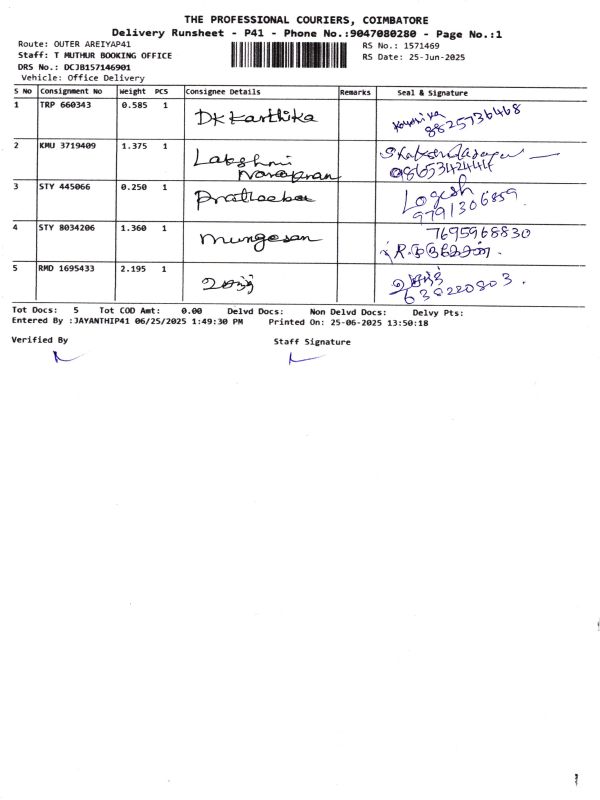 THE PROFESSIONAL COURIERS, COIMBATORE
Delivery Runsheet - P41 - Phone No.:9047080280 - Page No.:1
Route: OUTER AREIYAP41
RS No.: 1571469
Staff: T MUTHUR BOOKING OFFICE
RS Date: 25-Jun-2025
DRS No.: DCJB157146901
Vehicle: Office Delivery
S No Consignment No Weight PCS Consignee Details Remarks Seal & Signature
1 TRP 660343 0.585 1 DK Karthika
8825736468
2 KMU 3719409 1.375 1 Lakshmi Narayanan
9865342444
3 STY 445066 0.250 1 Logesh
9791306859
4 STY 8034206 1.360 1 Murugesan 7695968830
5 RMD 1695433 2.195 1
630220803
Tot Docs: 5 Tot COD Amt: 0.00 Delvd Docs: Non Delvd Docs: Delvy Pts:
Entered By :JAYANTHIP41 06/25/2025 1:49:30 PM Printed On: 25-06-2025 13:50:18
Verified By Staff Signature